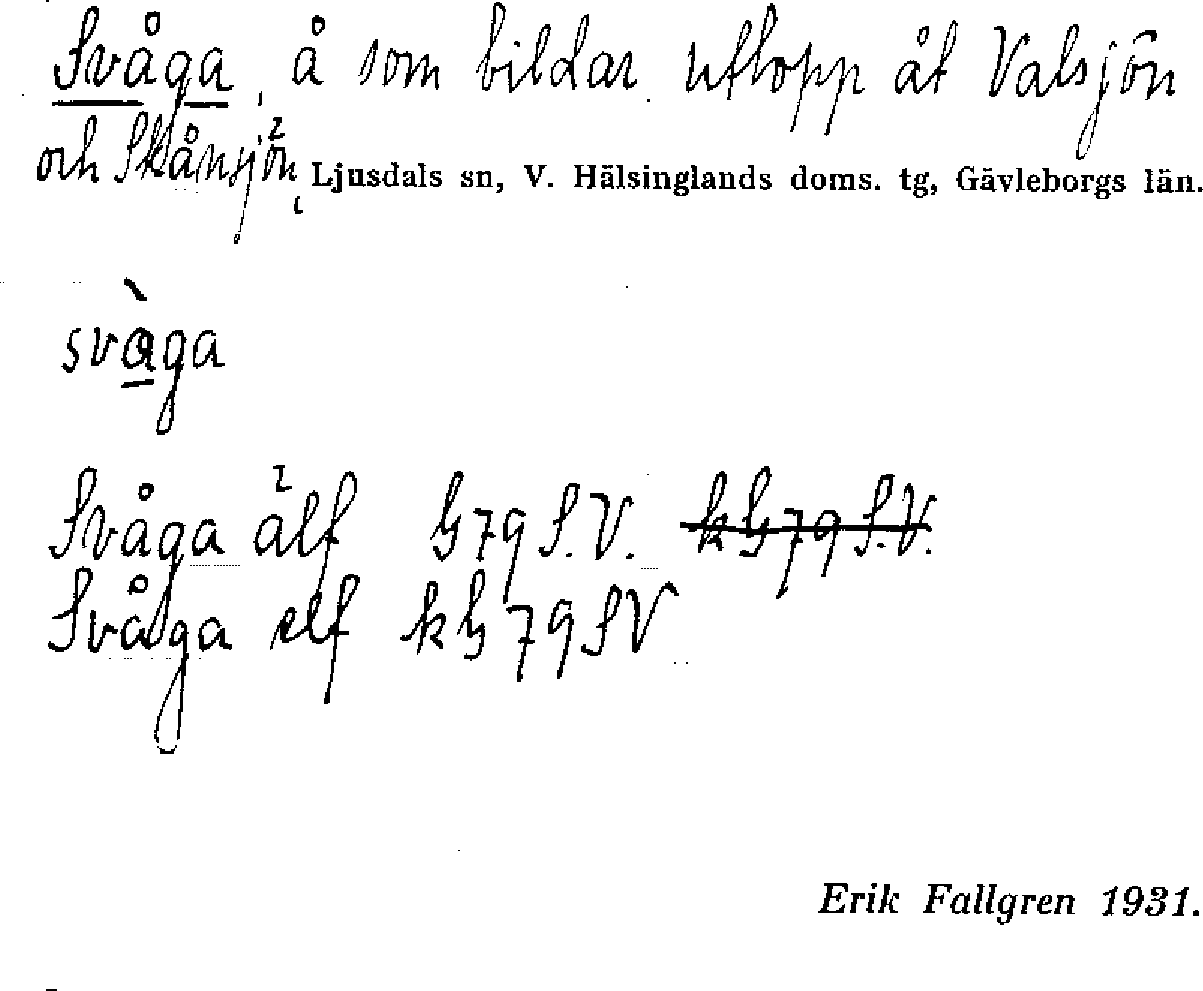 Svåga, å som bildar utlopp åt Valsjön
och Skånsjön, Ljusdals sn, V. Hälsinglands doms. tg, Gävleborgs län.
svàga
Svåga älf h 79 S.V. k h 79 S.V.
Svåga elf k h 79 SV
Erik Fallgren 1931.